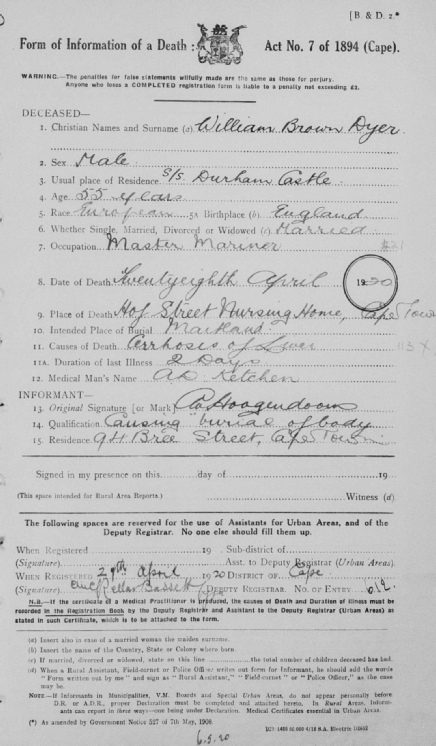 [B. & D. 2.*
Form of Information of a Death : Act No. 7 of 1894 (Cape).
WARNING.—The penalties for false statements wilfully made are the same as those for perjury.
Anyone who loses a COMPLETED registration form is liable to a penalty not exceeding £2.
DECEASED—
1. Christian Names and Surname (a) William Brown Dyer
2. Sex Male
3. Usual place of Residence S/S. Durham Castle
4. Age 55 years
5. Race European 5A Birthplace (b) England
6. Whether Single, Married, Divorced or Widowed (c) Married
7. Occupation Master Mariner
8. Date of Death Twentyeighth April 1920
9. Place of Death Hof Street Nursing Home, Cape Town
10. Intended Place of Burial Maitland
11. Causes of Death Cirrhosis of Liver 113 x
11A. Duration of last Illness 2 Days
12. Medical Man's Name AD Ketchen
INFORMANT—
13. Original Signature [or Mark] Hoogendoorn
14. Qualification Causing burial of body
15. Residence 94 Bree Street, Cape Town
Signed in my presence on this day of 19
(This space intended for Rural Area Reports.) Witness (d).
The following spaces are reserved for the use of Assistants for Urban Areas, and of the
Deputy Registrar. No one else should fill them up.
When Registered 19 Sub-district of
(Signature) Asst. to Deputy Registrar (Urban Areas).
WHEN REGISTERED 29th April 1920 DISTRICT OF Cape
(Signature) Bassett DEPUTY REGISTRAR. No. OF ENTRY 612.
N.B.—If the certificate of a Medical Practitioner is produced, the causes of Death and Duration of Illness must be
recorded in the Registration Book by the Deputy Registrar and Assistant to the Deputy Registrar (Urban Areas) as
stated in such Certificate, which is to be attached to the form.
(a) Insert also in case of a married woman the maiden surname.
(b) Insert the name of the Country, State or Colony where born.
(c) If married, divorced or widowed, state on this line the total number of children deceased has had.
(d) When a Rural Assistant, Field-cornet or Police Officer writes out form for Informant, he should add the words
"Form written out by me" and sign as "Rural Assistant," "Field-cornet" or "Police Officer," as the case
may be.
NOTE.—If Informants in Municipalities, V.M. Boards and Special Urban Areas, do not appear personally before
D.R. or A.D.R., proper Declaration must be completed and attached hereto. In Rural Areas, Inform-
ants can report in three ways—one being under Declaration. Medical Certificates essential in Urban Areas.
(*) As amended by Government Notice 527 of 7th May, 1908.
6.5.20